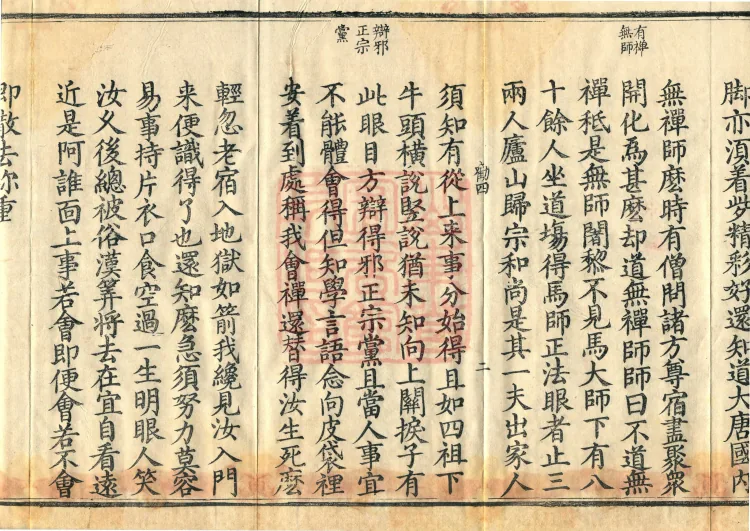 脚亦須着些精彩好還知道大唐國内
有禅
無師
無禪師麽時有僧問諸方尊宿盡聚衆
開化爲甚麽却道無禪師師曰不道無
禪秖是無師闍黎不見馬大師下有八
十餘人坐道塲得馬師正法眼者止三
兩人廬山歸宗和尚是其一夫出家人
勸四
二
須知有從上来事分始得且如四祖下
牛頭横說竪說猶未知向上關捩子有
辩邪
正宗
黨
此眼目方辯得邪正宗黨且當人事宜
不能體會得但知學言語念向皮袋裡
安着到處稱我會禪還替得汝生死麽
輕忽老宿入地獄如箭我纔見汝入門
来便識得了也還知麽急須努力莫容
易事持片衣口食空過一生明眼人笑
汝乆後總被俗漢筭將去在宜自看遠
近是阿誰面上事若會即便會若不會
即散去珎重